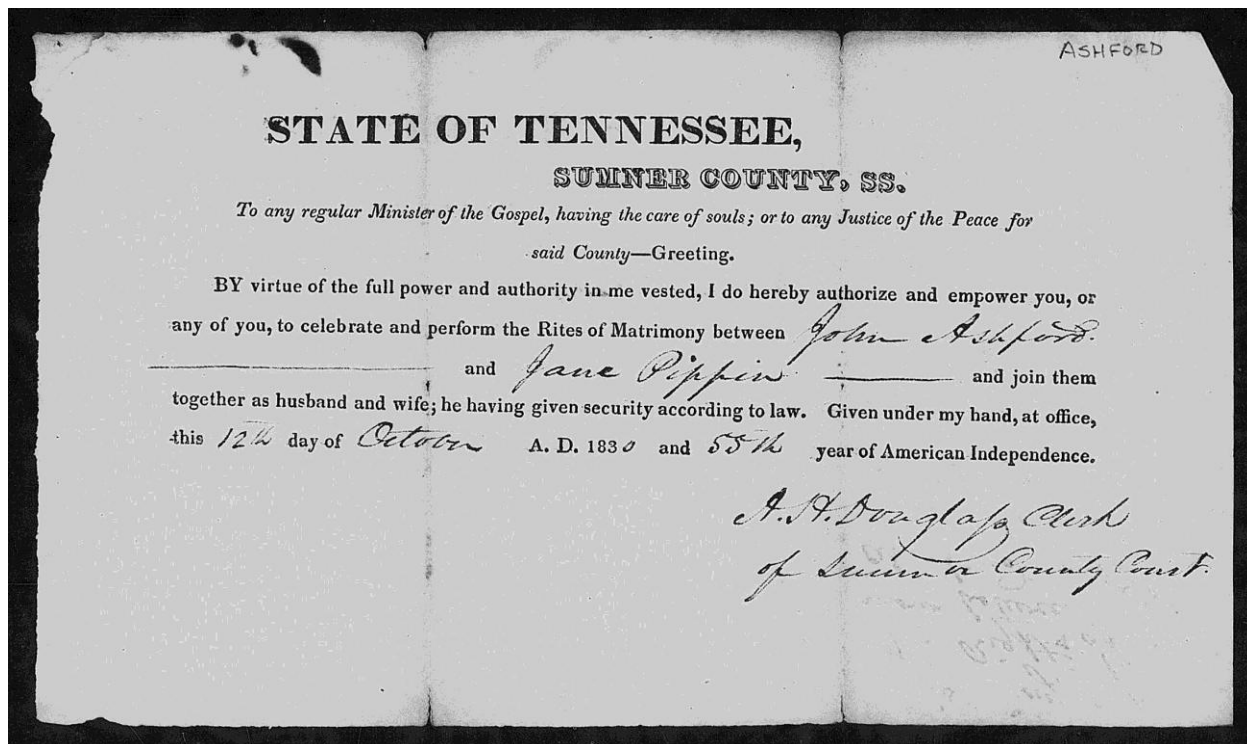 ASHFORD
STATE OF TENNESSEE,
SUMNER COUNTY, SS.
To any regular Minister of the Gospel, having the care of souls; or to any Justice of the Peace for
said County—Greeting.
BY virtue of the full power and authority in me vested, I do hereby authorize and empower you, or
any of you, to celebrate and perform the Rites of Matrimony between John Ashford.
and Jane Pippin and join them
together as husband and wife; he having given security according to law. Given under my hand, at office,
this 12th day of October A. D. 1830 and 55th year of American Independence.
A. H. Douglass Clerk
of Sumner County Court.